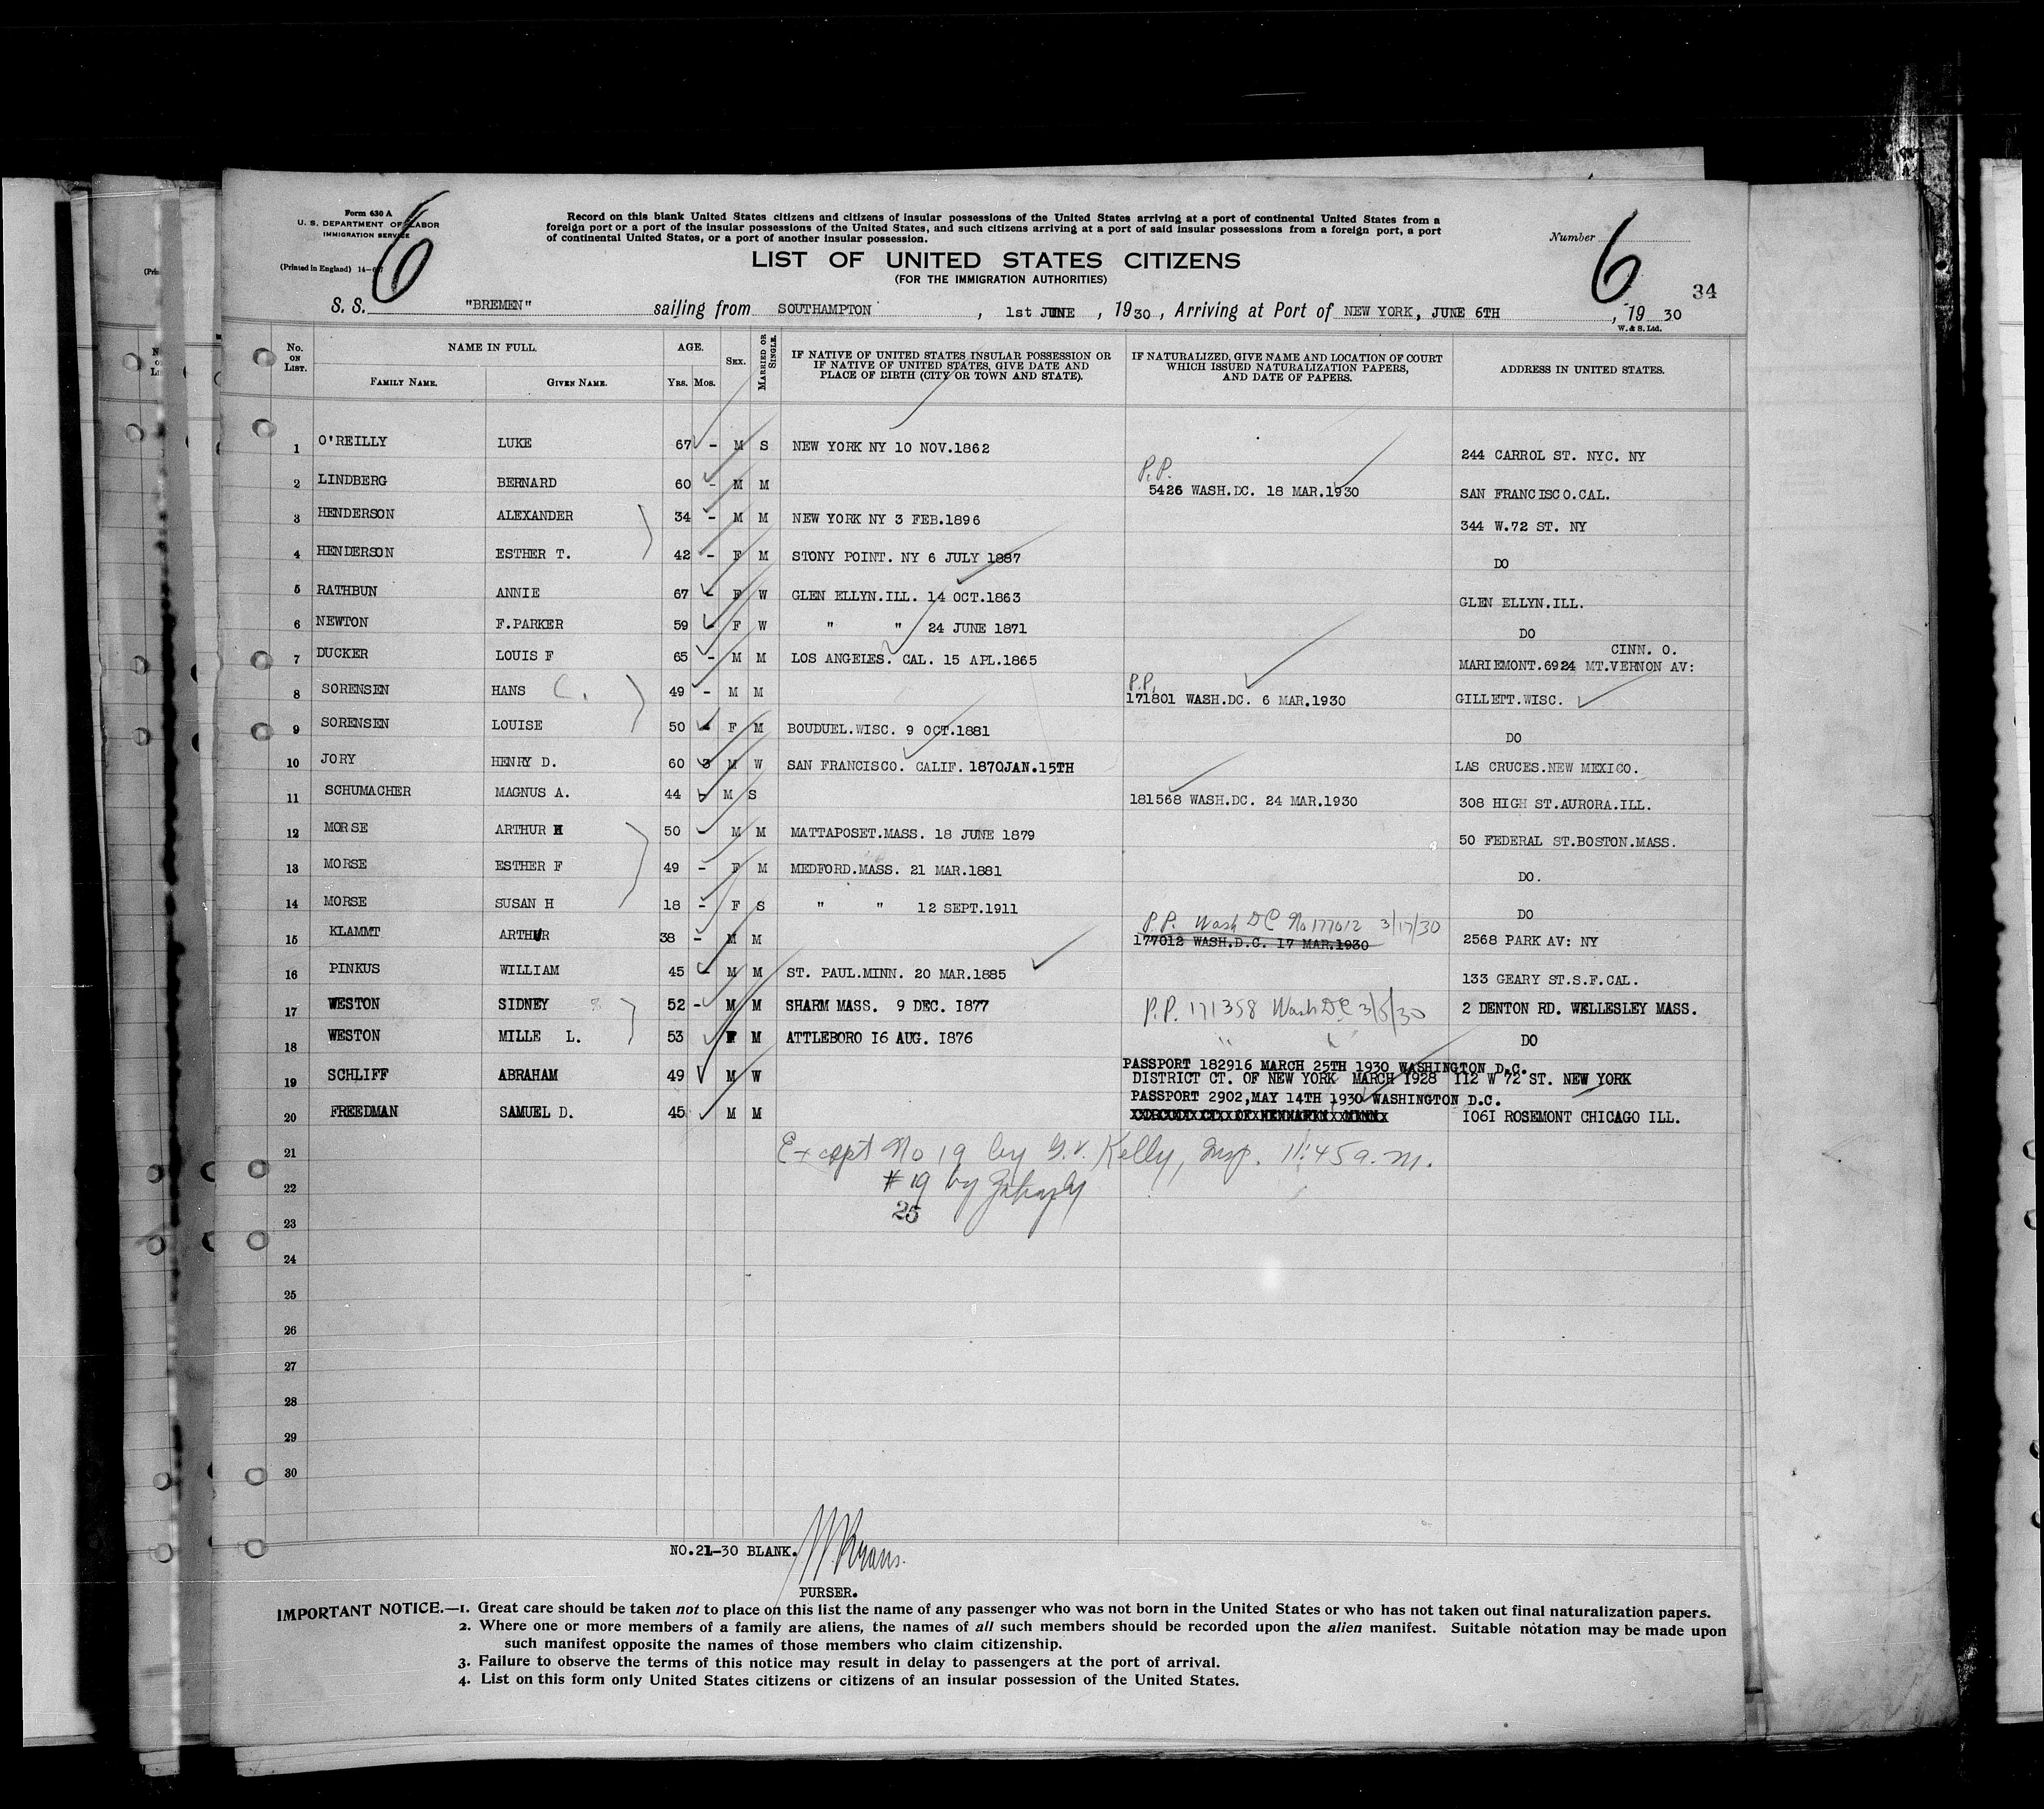 Form 630 A
U. S. DEPARTMENT OF LABOR
IMMIGRATION SERVICE
(Printed in England) 14-
6
Record on this blank United States citizens and citizens of insular possessions of the United States arriving at a port of continental United States from a
foreign port or a port of the insular possessions of the United States, and such citizens arriving at a port of said insular possessions from a foreign port, a port
of continental United States, or a port of another insular possession.
LIST OF UNITED STATES CITIZENS
(FOR THE IMMIGRATION AUTHORITIES)
Number 6
34
S. S. "BREMEN" sailing from SOUTHAMPTON, 1st JUNE, 1930, Arriving at Port of NEW YORK, JUNE 6TH, 1930
W. & S. Ltd.
No. ON LIST. NAME IN FULL. AGE. SEX. MARRIED OR SINGLE. IF NATIVE OF UNITED STATES INSULAR POSSESSION OR IF NATIVE OF UNITED STATES, GIVE DATE AND PLACE OF BIRTH (CITY OR TOWN AND STATE). IF NATURALIZED, GIVE NAME AND LOCATION OF COURT WHICH ISSUED NATURALIZATION PAPERS, AND DATE OF PAPERS. ADDRESS IN UNITED STATES.
FAMILY NAME. GIVEN NAME. YRS. MOS.
1 O'REILLY LUKE 67 - M S NEW YORK NY 10 NOV.1862 244 CARROL ST. NYC. NY
2 LINDBERG BERNARD 60 - M M P.P. 5426 WASH.DC. 18 MAR.1930 SAN FRANCISCO.CAL.
3 HENDERSON ALEXANDER 34 - M M NEW YORK NY 3 FEB.1896 344 W.72 ST. NY
4 HENDERSON ESTHER T. 42 - F M STONY POINT. NY 6 JULY 1887 DO
5 RATHBUN ANNIE 67 - F W GLEN ELLYN.ILL. 14 OCT.1863 GLEN ELLYN.ILL.
6 NEWTON F.PARKER 59 - F W " " 24 JUNE 1871 DO
7 DUCKER LOUIS F 65 - M M LOS ANGELES. CAL. 15 APL.1865 CINN. O. MARIEMONT.6924 MT.VERNON AV:
8 SORENSEN HANS C. 49 - M M P.P. 171801 WASH.DC. 6 MAR.1930 GILLETT.WISC.
9 SORENSEN LOUISE 50 - F M BOUDUEL.WISC. 9 OCT.1881 DO
10 JORY HENRY D. 60 3 M W SAN FRANCISCO. CALIF. 1870JAN.15TH LAS CRUCES.NEW MEXICO.
11 SCHUMACHER MAGNUS A. 44 - M S 181568 WASH.DC. 24 MAR.1930 308 HIGH ST.AURORA.ILL.
12 MORSE ARTHUR H 50 - M M MATTAPOSET.MASS. 18 JUNE 1879 50 FEDERAL ST.BOSTON.MASS.
13 MORSE ESTHER F 49 - F M MEDFORD.MASS. 21 MAR.1881 DO.
14 MORSE SUSAN H 18 - F S " " 12 SEPT.1911 DO
P.P. Wash DC No 177012 3/17/30
15 KLAMMT ARTHUR 38 - M M 177012 WASH.D.C. 17 MAR.1930 2568 PARK AV: NY
16 PINKUS WILLIAM 45 - M M ST. PAUL.MINN. 20 MAR.1885 133 GEARY ST.S.F.CAL.
17 WESTON SIDNEY 52 - M M SHARM MASS. 9 DEC. I877 P.P. 171358 Wash DC 3/5/30 2 DENTON RD. WELLESLEY MASS.
18 WESTON MILLE L. 53 F M ATTLEBORO I6 AUG. I876 " " DO
PASSPORT 182916 MARCH 25TH 1930 WASHINGTON D.C.
19 SCHLIFF ABRAHAM 49 M W DISTRICT CT. OF NEW YORK MARCH I928 II2 W 72 ST. NEW YORK
PASSPORT 2902,MAY 14TH 1930 WASHINGTON D.C.
20 FREEDMAN SAMUEL D. 45 M M I06I ROSEMONT CHICAGO ILL.
21 Except No 19 by G.V. Kelly, Insp. 11:45 a.m.
22 #19 by
23 25
24
25
26
27
28
29
30
NO.21-30 BLANK.
PURSER.
IMPORTANT NOTICE.—1. Great care should be taken not to place on this list the name of any passenger who was not born in the United States or who has not taken out final naturalization papers.
2. Where one or more members of a family are aliens, the names of all such members should be recorded upon the alien manifest. Suitable notation may be made upon
such manifest opposite the names of those members who claim citizenship.
3. Failure to observe the terms of this notice may result in delay to passengers at the port of arrival.
4. List on this form only United States citizens or citizens of an insular possession of the United States.